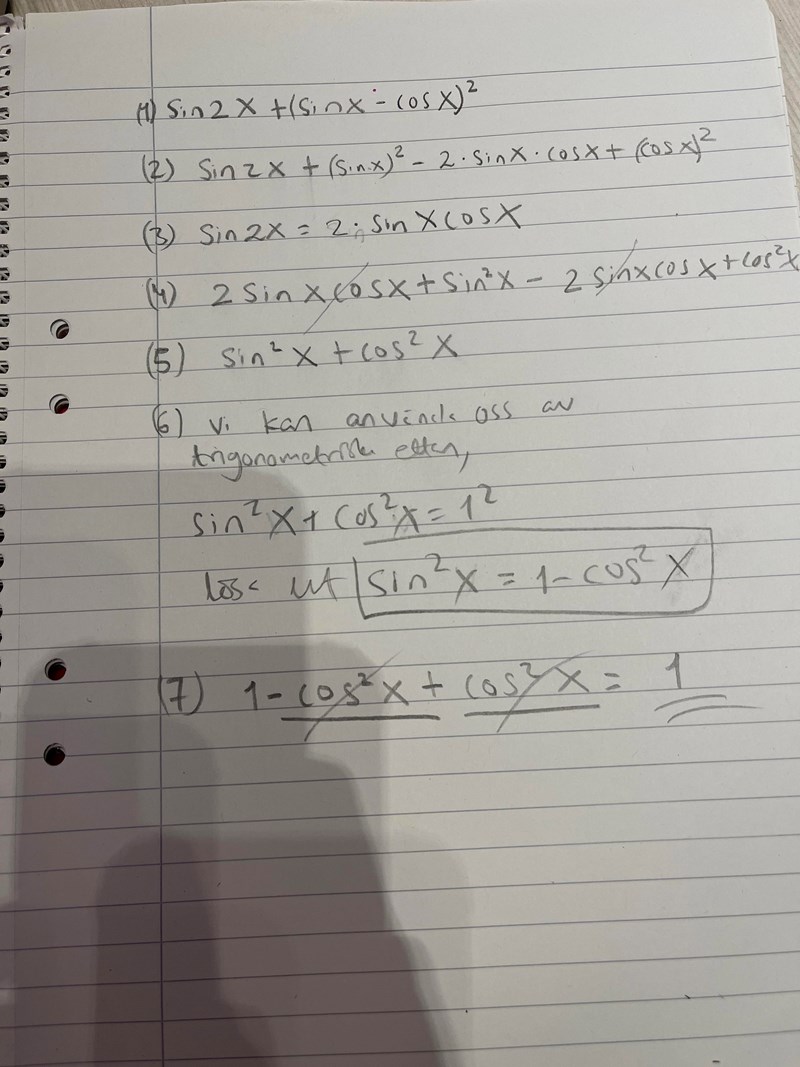 (1) sin2x + (sinx - cosx)²
(2) sin2x + (sinx)² - 2·sinx·cosx + (cosx)²
(3) sin2x = 2·sinxcosx
(4) 2sinxcosx + sin²x - 2sinxcosx + cos²x
(5) sin²x + cos²x
(6) Vi kan använda oss av
trigonometriska ettan,
sin²x + cos²x = 1²
lösa ut sin²x = 1 - cos²x
(7) 1 - cos²x + cos²x = 1